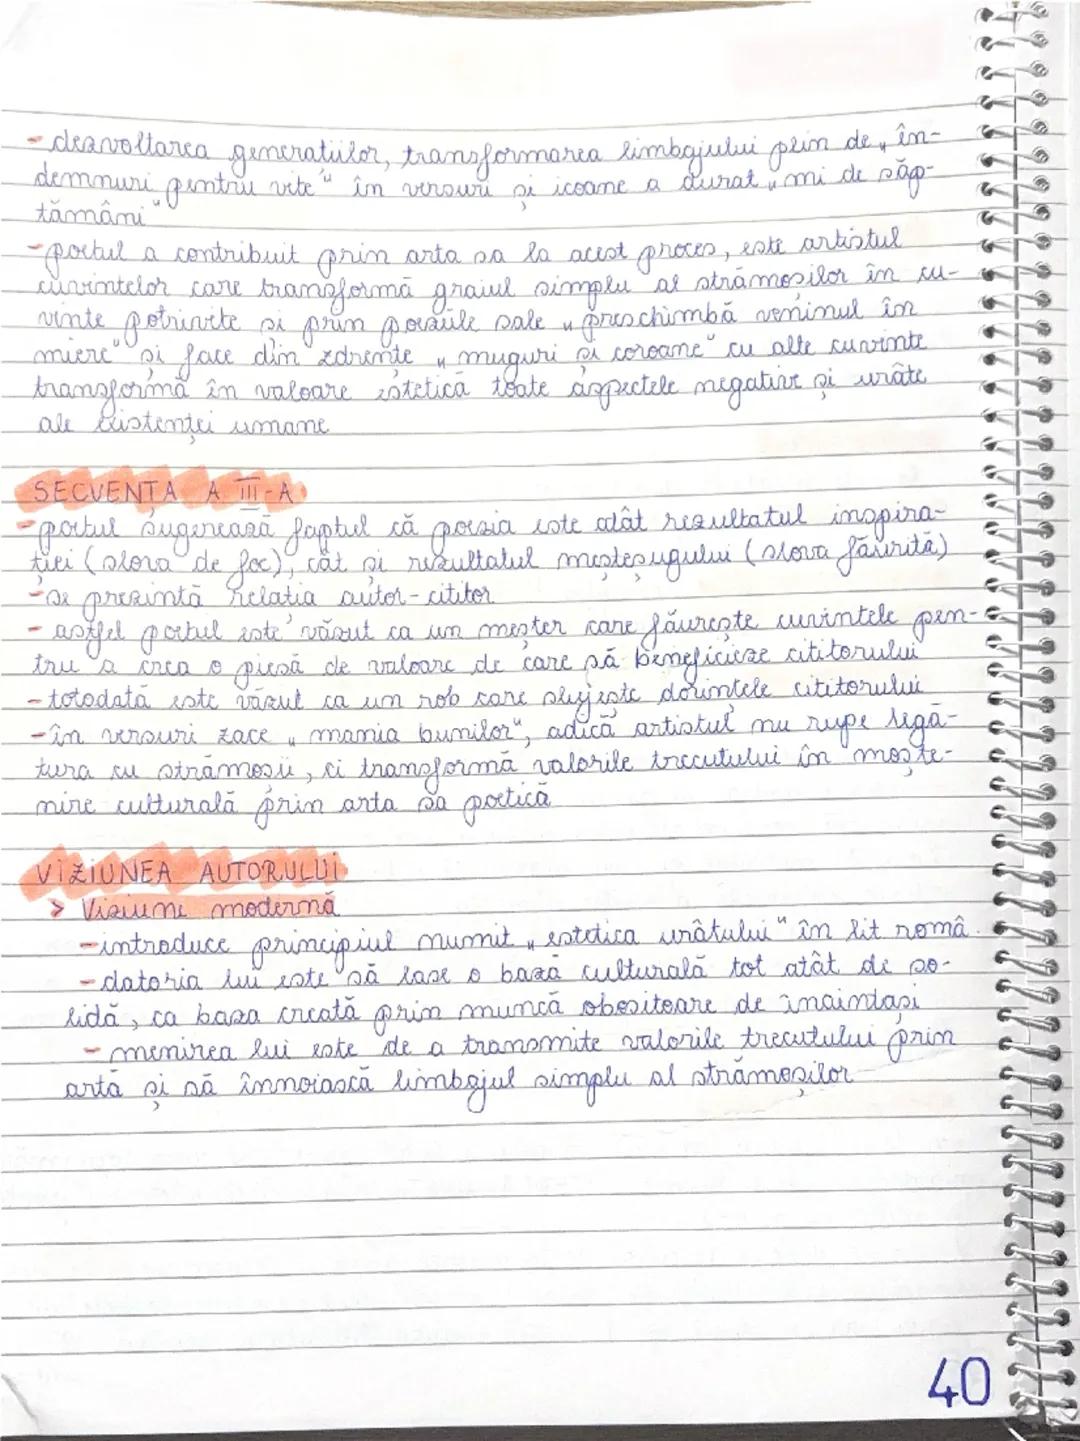 - dezvoltarea generațiilor, transformarea limbajului plin de „în-
demnuri pentru vite" în versuri și icoane a durat „mi de săp-
tămâni"
- poetul a contribuit prin arta sa la acest proces, este artistul
cuvintelor care transformă graiul simplu al strămoșilor în cu-
vinte potrivite și prin poeziile sale „preschimbă veninul în
miere" și face din zdrențe „muguri și coroane" cu alte cuvinte
transformă în valoare estetică toate aspectele negative și urâte
ale existenței umane
SECVENȚA A III-A
- poetul sugerează faptul că poezia este atât rezultatul inspira-
ției (slova de foc), cât și rezultatul meșteșugului (slova făurită)
- se prezintă relația autor-cititor
- astfel poetul este văzut ca un meșter care făurește cuvintele pen-
tru a crea o piesă de valoare de care să beneficieze cititorului
- totodată este văzut ca un rob care slujește dorințele cititorului
- în versuri zace „mania bunilor", adică artistul nu rupe legă-
tura cu strămoșii, ci transformă valorile trecutului în moște-
nire culturală prin arta sa poetică
VIZIUNEA AUTORULUI
> Viziune modernă
- introduce principiul numit „estetica urâtului" în lit română.
- datoria lui este să lase o bază culturală tot atât de so-
lidă, ca baza creată prin muncă obositoare de înaintași
- menirea lui este de a transmite valorile trecutului prin
artă și să înnoiască limbajul simplu al strămoșilor
40